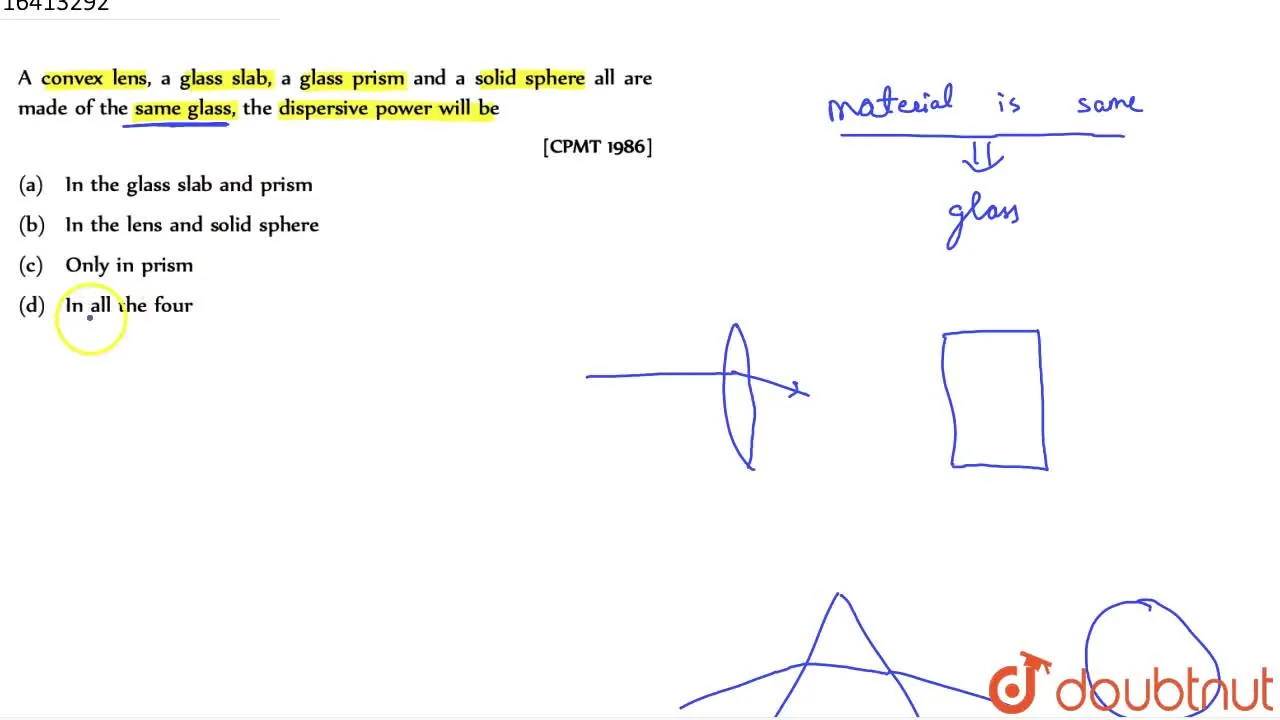 16413292
A convex lens, a glass slab, a glass prism and a solid sphere all are
made of the same glass, the dispersive power will be
[CPMT 1986]
(a) In the glass slab and prism
(b) In the lens and solid sphere
(c) Only in prism
(d) In all the four
material is same
glass
doubtnut